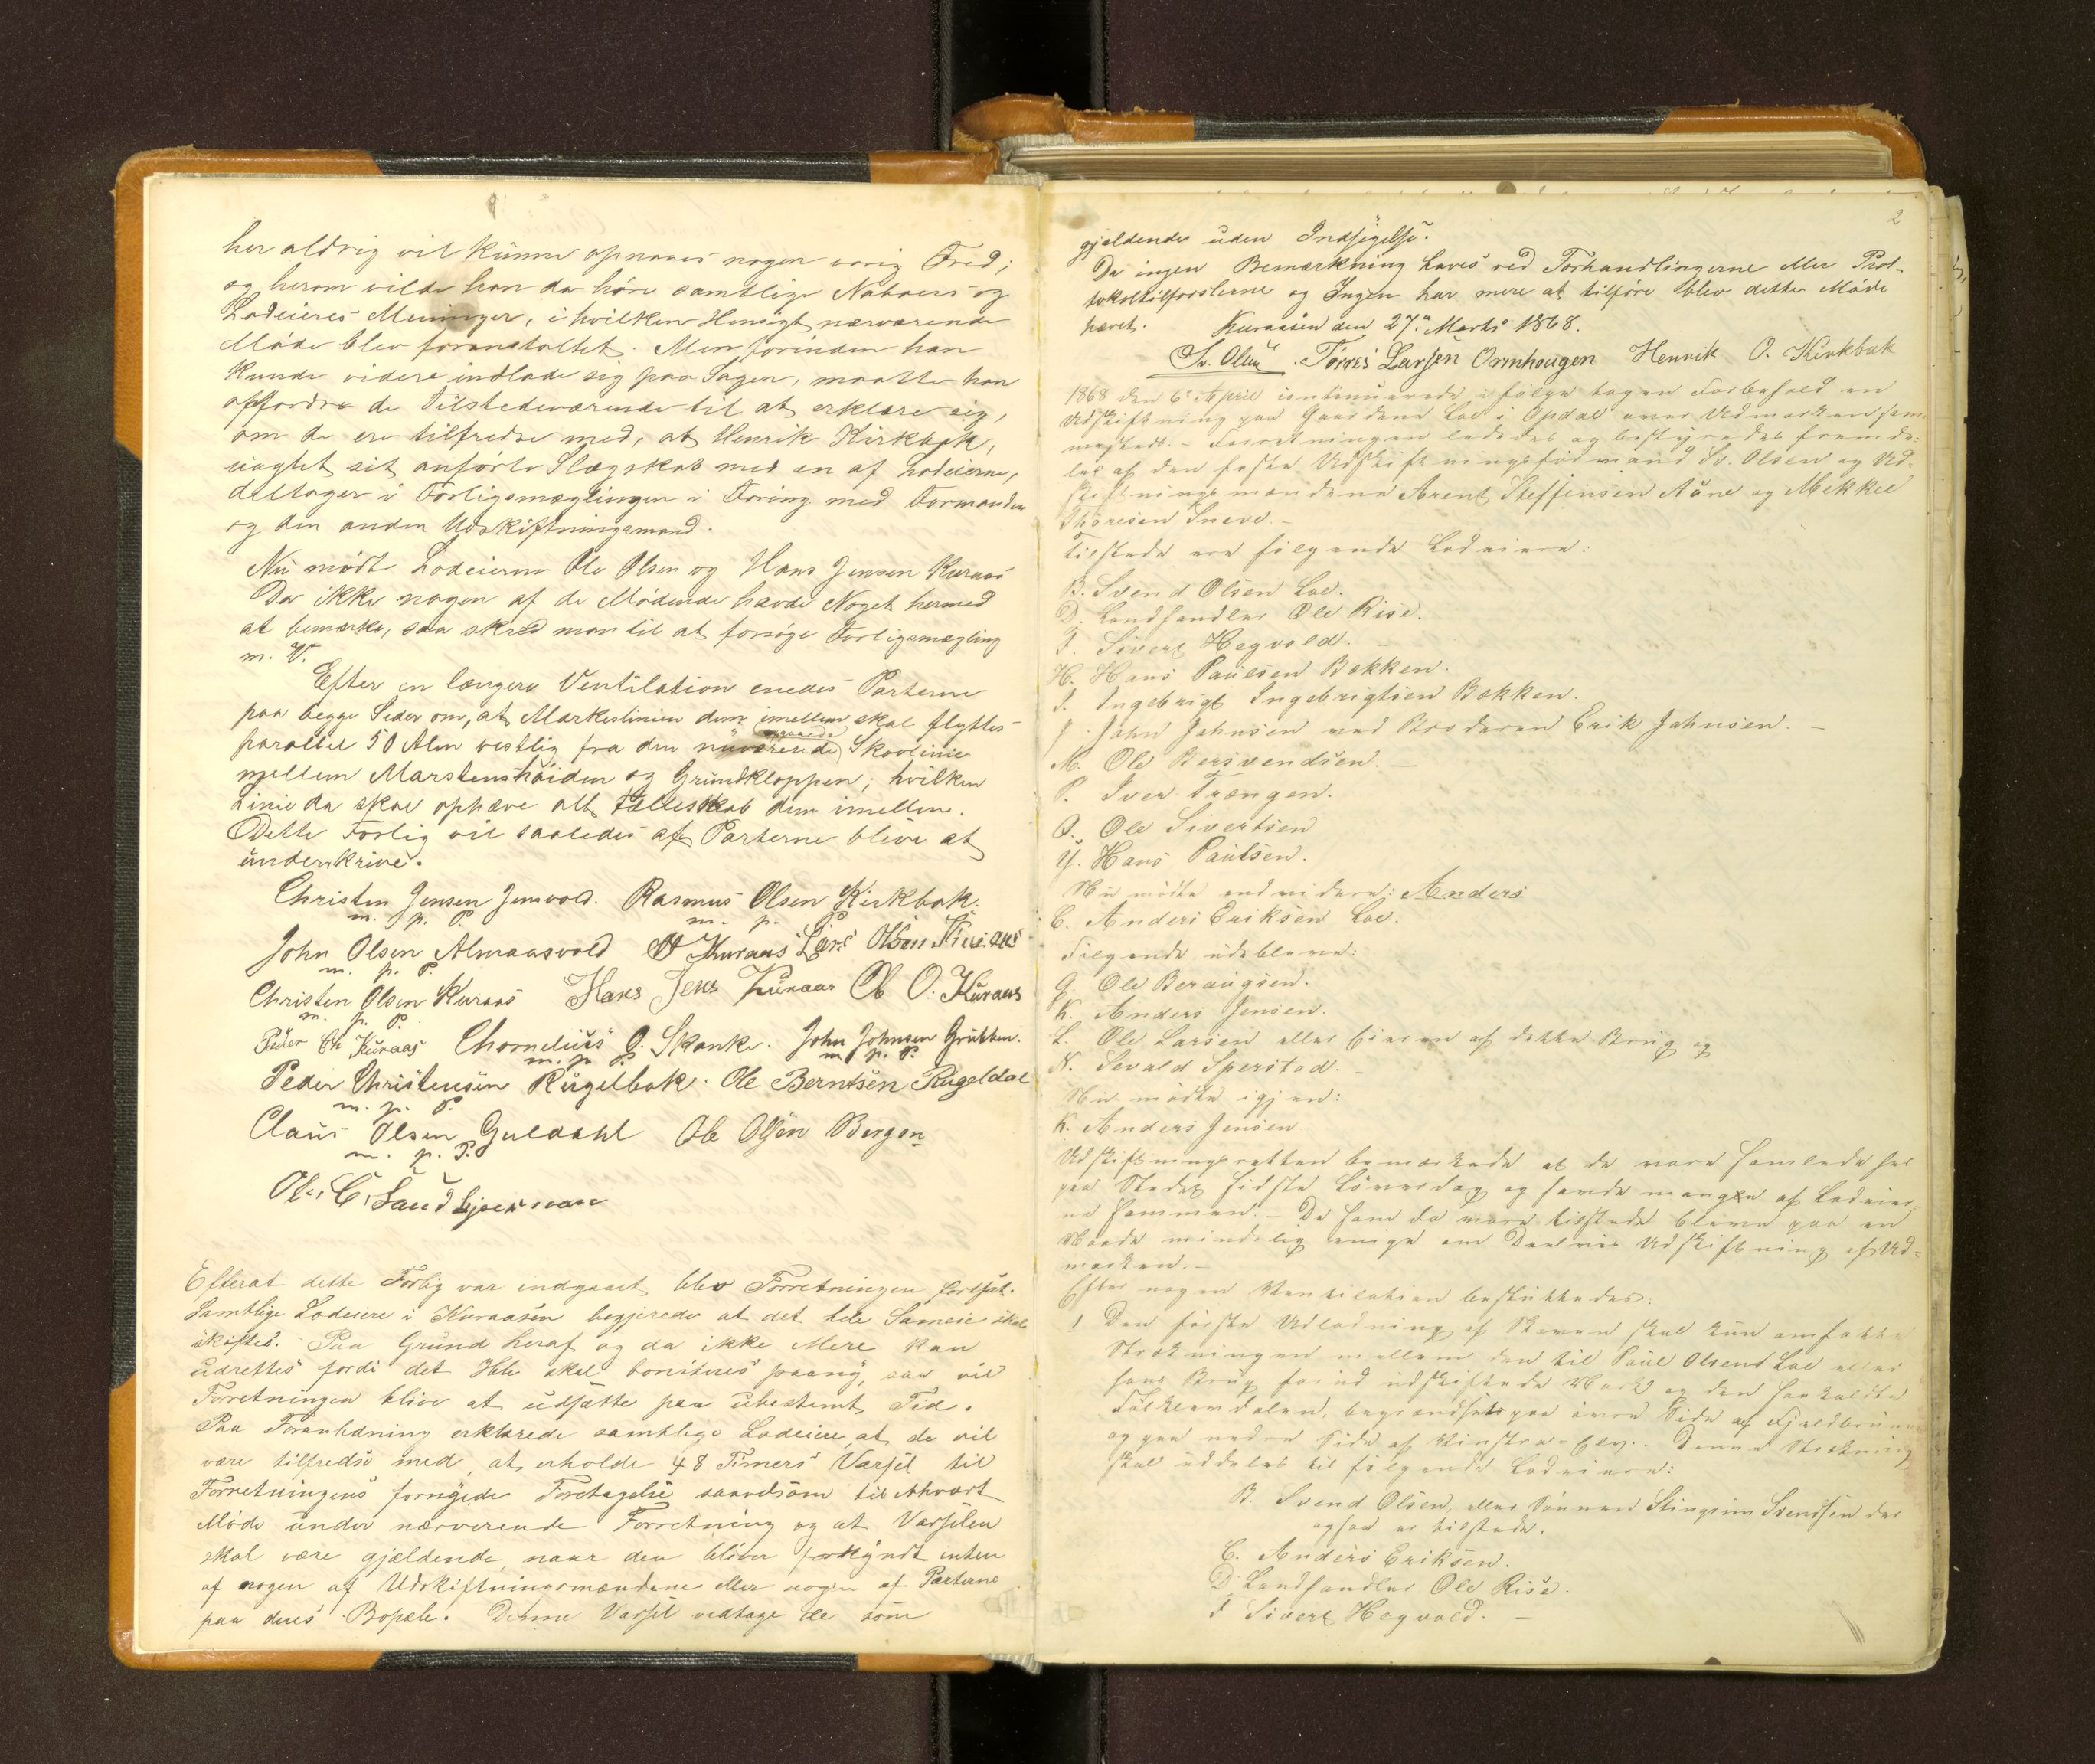 her aldrig vil kunne opnaaes nogen varig Fred;
og herom vilde han da høre samtlige Naboers og
Lodeieres Meninger, i hvilken Hensigt nærværende
Møde blev foranstaltet. Men forinden han
kunde videre indlade sig paa Sagen, maatte han
opfordre de Tilstedeværende til at erklære sig,
om de ere tilfredse med, at Henrik Kirkbak,
uagtet sit anførte Slægskab med en af Lodeierne,
deltager i Forligsmæglingen i Foring med Formanden
og den anden Udskiftningsmand.
Nu mødte Lodeierne Ole Olsen og Hans Jensen Kuraas
Da ikke nogen af de Mødende havde Noget hermed
at bemærke, saa skred man til at forsøge Forligsmægling
m. V.
Efter en længere Ventilation enedes Parterne
paa begge Sider om, at Markeslinien dem imellem skal flyttes
parallel 50 Alen vestlig fra den nuværende Skovlinie
mellem Marstenshöiden og Grundkloppen; hvilken
Linie da skal ophæve alt Fællesskab dem imellem.
Dette Forlig vil saaledes af Parterne blive at
underskrive.
Christen Jensen Jensvold. Rasmus Olsen Kirkbak.
m. p. P. m. p. P.
John Olsen Almaasvold O Kuraas Lars Olsen Kuraas
m. p. P.
Christen Olsen Kuraas Hans Jens Kuraas Ole O. Kuraas
m. p. P.
Peder Ch Kuraas Chornelius O. Skanke. John Johnsen Grubben.
m. p. P. m. p. P.
Peder Christensen Rugelbak. Ole Berntsen Rugeldal
m. p. P.
Claus Olsen Guldahl Ole Olsen Bergen
m. p. P.
Ole C. Sandkjernan
Efterat dette Forlig var indgaaet blev Forretningen fortsat.
Samtlige Lodeiere i Kuraasen begjerede at det hele Sameie skal
skiftes. Paa Grund heraf og da ikke Mere kan
udrettes fordi det Hele skal boniteres paany, saa vil
Forretningen blive at udsætte paa ubestemt Tid.
Paa Foranledning erklærede samtlige Lodeiere, at de vil
være tilfredse med, at erholde 48 Timers Varsel til
Forretningens fornyede Foretagelse saavelsom til ethvert
Møde under nærværende Forretning og at Varselen
skal være gjældende, naar den bliver forkyndt enten
af nogen af Udskiftningsmændene eller nogen af Parterne
paa deres Bopæle. Denne Varsel vedtage de som
2
gjældende uden Indsigelse.
Da ingen Bemærkning haves ved Forhandlingerne eller Prot-
tokoltilførslerne og Ingen har mere at tilføre blev dette Møde
hævet. Kuraasen den 27de Marts 1868.
Sv. Olsen. Törres Larsen Ormhaugen Henrik O. Kirkbak
1868 den 6te April continuerede i følge tagen Forbehold en
Udskiftning paa Gaardene Loe i Opdal over Udmarken sam-
mesteds. – Forretningen lededes og bestyredes fremde-
les af den faste Udskiftningsformand Sv. Olsen og Ud-
skiftningsmændene Arent Steffensen Aune og Mikkel
Thoresen Sneve. –
Tilstede ere følgende Lodeiere:
B. Svend Olsen Loe.
D. Landhandler Ole Rise.
F. Sivert Hegvold. –
H. Hans Paulsen Bækken.
I. Ingebrigt Ingebrigtsen Bækken.
J. John Johnsen ved Broderen Erik Johnsen. –
M. Ole Bersvendsen. –
P. Iver Trængen.
O. Ole Sivertsen
U. Hans Paulsen.
Nu mødte endvidere: Anders
C. Anders Eriksen Loe.
Følgende udebleve:
G. Ole Beraugsen.
K. Anders Jensen.
L. Ole Larsen eller Eieren af dette Brug og
N. Sevald Sperstad. –
Nu mødte igjen:
K. Anders Jensen.
Udskiftningsretten bemærkede at de vare samlede her
paa Stedet sidste Löverdag og havde mangen af Lodeier-
ne sammen. – De som da vare tilstede bleve paa en
Maade mindelig enige om Deelvis Udskiftning af Ud-
marken. –
Efter nogen Ventilation besluttedes:
1 Den første Udlodning af Skoven skal kun omfatte
Strækningen mellem den til Paul Olsens Loe eller
hans Brug forud udskiftede Mark og den saakaldte
begrændset paa övre Side af Fjeldbrunen
og paa nedre Side af Vinstra-Elv. – Denne Strækning
skal uddeles til følgende Lodeiere:
B. Svend Olsen, eller Sønnen Stingrim Svendsen der
ogsaa er tilstede.
C. Anders Eriksen.
D. Landhandler Ole Rise.
F Sivert Hegvold. –